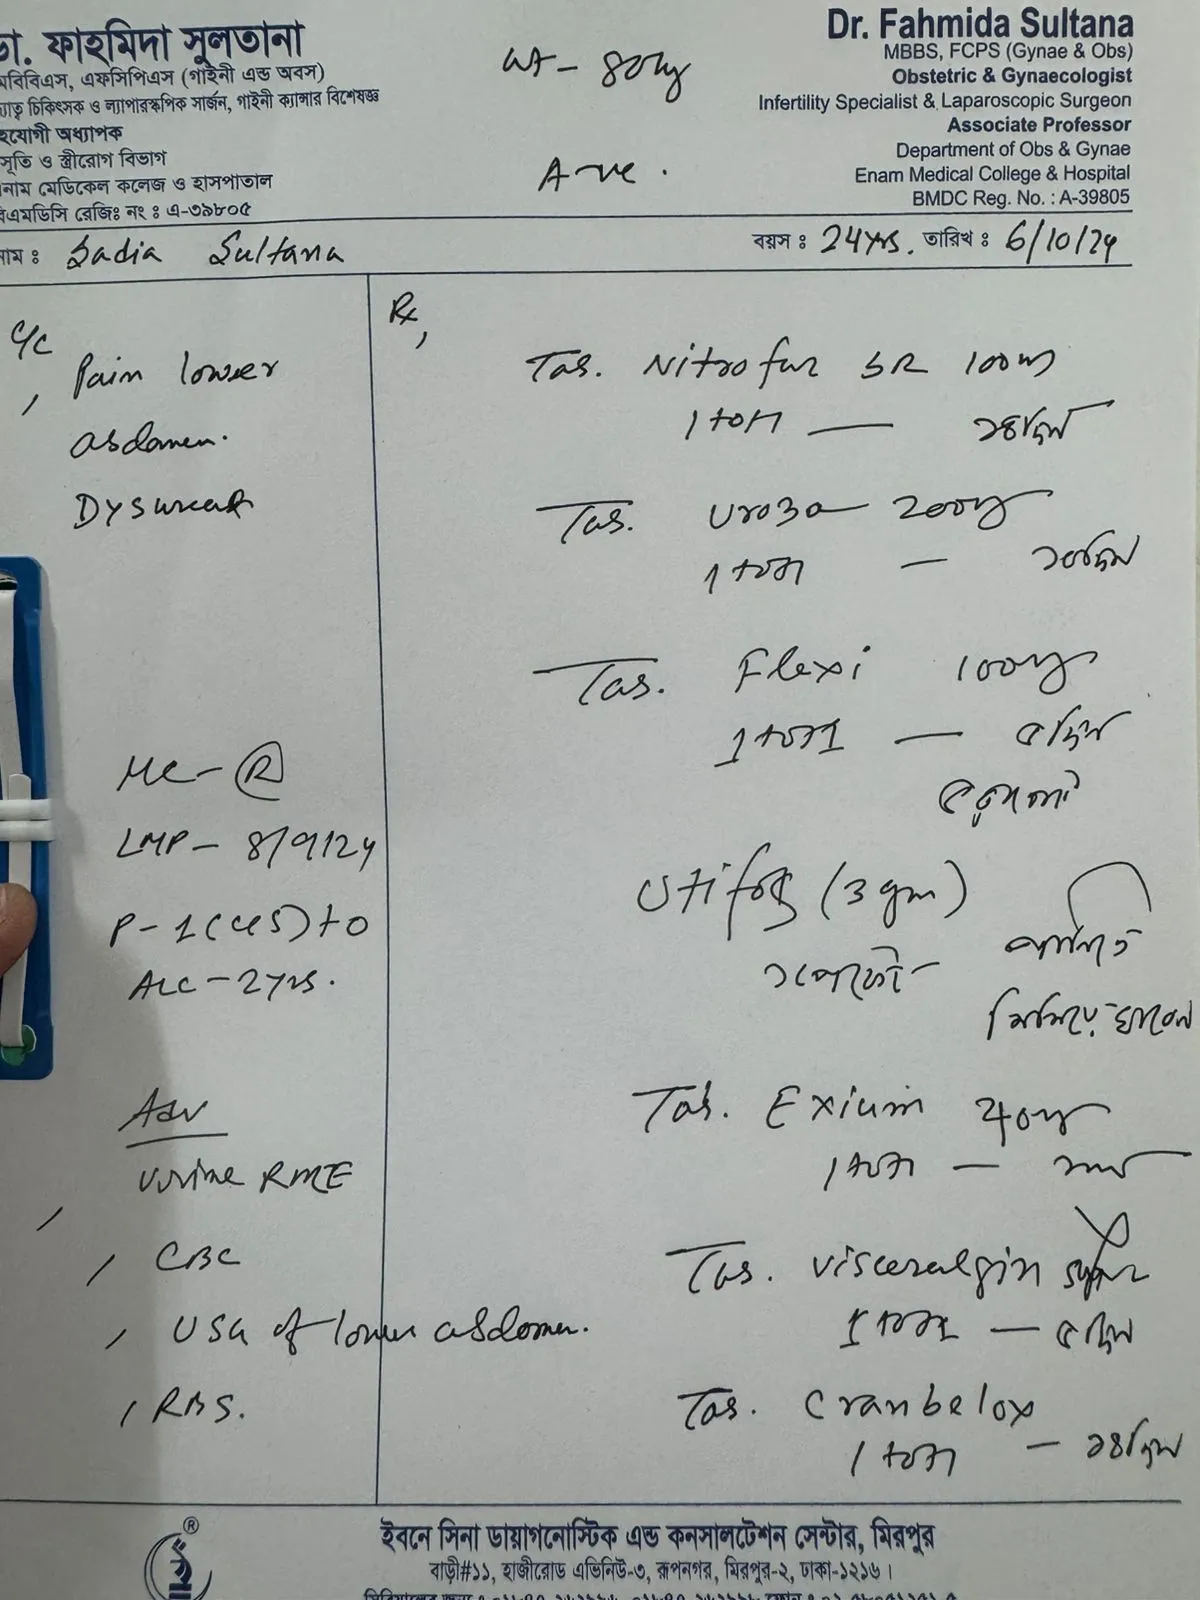 ডা. ফাহমিদা সুলতানা
মবিবিএস, এফসিপিএস (গাইনী এন্ড অবস)
চিকিৎসক ও ল্যাপারস্কপিক সার্জন, গাইনী ক্যান্সার বিশেষজ্ঞ
হযোগী অধ্যাপক
সূতি ও স্ত্রীরোগ বিভাগ
নাম মেডিকেল কলেজ ও হাসপাতাল
বিএমডিসি রেজিঃ নং ঃ এ-৩৯৮০৫
Wt - 80kg
A-ve.
Dr. Fahmida Sultana
MBBS, FCPS (Gynae & Obs)
Obstetric & Gynaecologist
Infertility Specialist & Laparoscopic Surgeon
Associate Professor
Department of Obs & Gynae
Enam Medical College & Hospital
BMDC Reg. No. : A-39805
নাম ঃ Sadia Sultana বয়স ঃ 24yrs. তারিখ ঃ 6/10/24
C/C
Pain lower
abdomen.
Dysurea
MC - (R)
LMP - 8/9/24
P - 1(c/s)+0
ALC - 2yrs.
Adv
Urine RME
CBC
USG of lower abdomen.
RBS.
Rx,
Tab. Nitrofur SR 100mg
1+0+1 — ১৪দিন
Tab. Uroza 200mg
1+0+1 — ১০দিন
Tab. Flexi 100mg
1+0+1 — ৫দিন
Utifos (3gm)
পানিতে
মিশিয়ে খাবেন
Tab. Exium 40mg
1+0+1 —
Tab. Visceralgin
1+1+1 — ৫দিন
Tab. Cranbelox
1+0+1 — ১৪দিন
ইবনে সিনা ডায়াগনোস্টিক এন্ড কনসালটেশন সেন্টার, মিরপুর
বাড়ী#১১, হাজীরোড এভিনিউ-৩, রূপনগর, মিরপুর-২, ঢাকা-১২১৬।